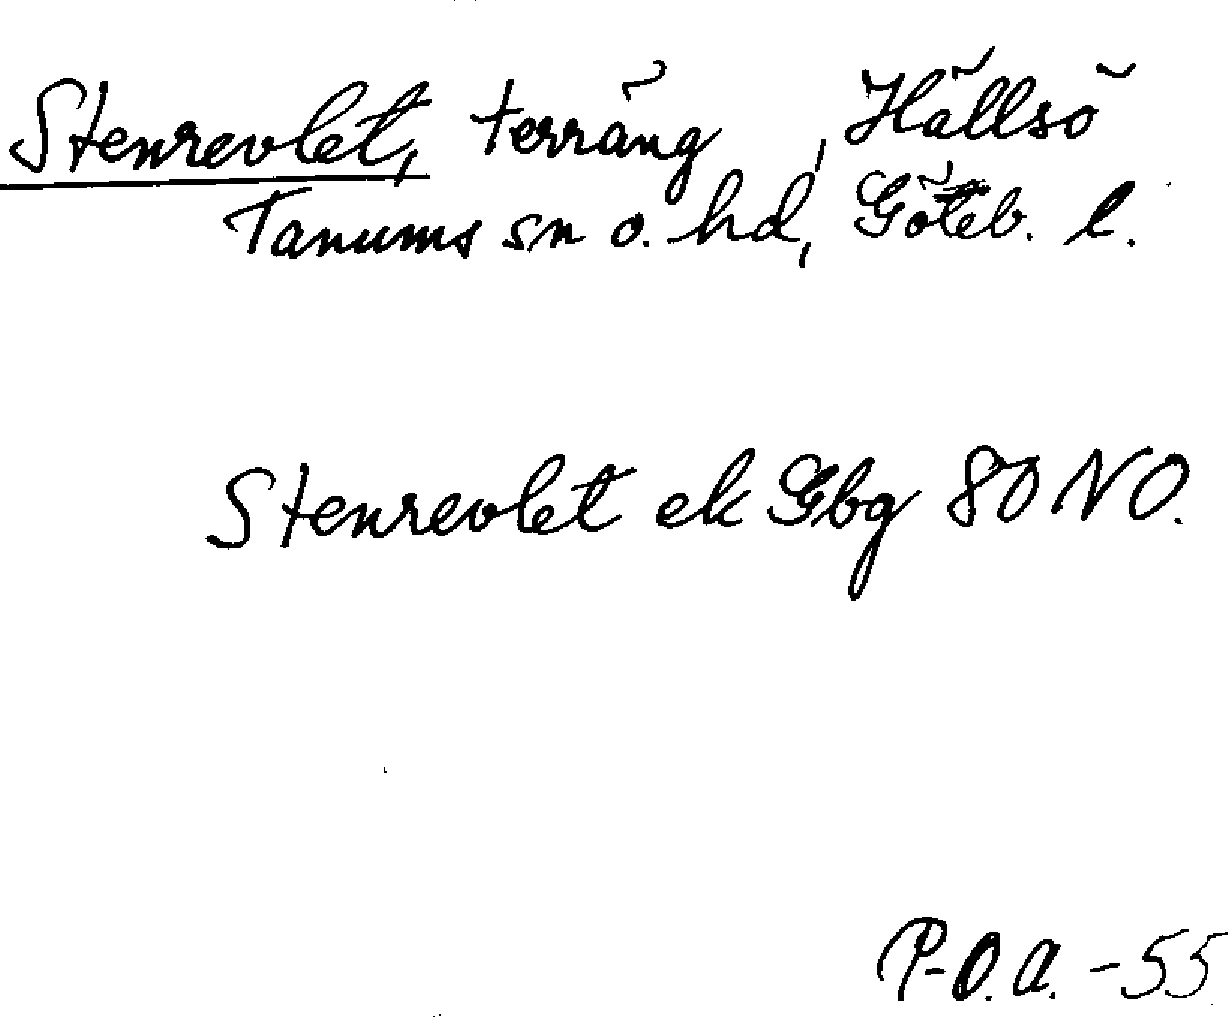 Stenrevlet, terräng, Hällsö
Tanums sn o. hd, Göteb. l.
Stenrevlet ek Gbg 80 NO.
P-O.A. -55